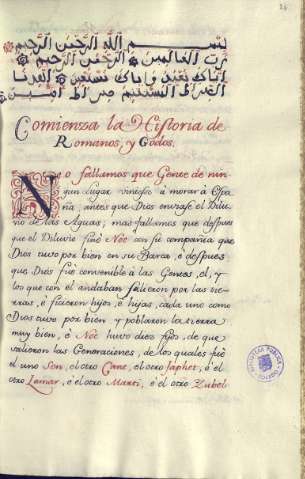 24
بسم الله الرحمن الرحيم
رب العالمين الرحمن الرحيم
اياك نعبد واياك نستعين اهدنا
الصراط المستقيم صراط امين
Comienza la Historia de
Romanos, y Godos.
No fallamos que Gente de nin
gun lugar viniese à morar à Espa
ña, antes que Dios enviase el Dilu
vio de las Aguas; mas fallamos que despues
que el Diluvio finò Nòe con su compañia que
Dios tuvo por bien en su Barca, è despues
que Dios fuè convenible à las Gentes, el, y
los que con el andaban salieron por las tie
rras, è ficieron hijos, è hijas, cada uno como
Dios tuvo por bien y poblaron la tierra
muy bien, è Nòe huvo diez fijos, de que
salieron las Generaciones, de los quales fuè
el uno Sen, el otro Cane, el otro Japhet, è el
otro Lamar, è el otro Marti, è el otro Zubel
BIBLIOTECA PUBLICA
TOLEDO